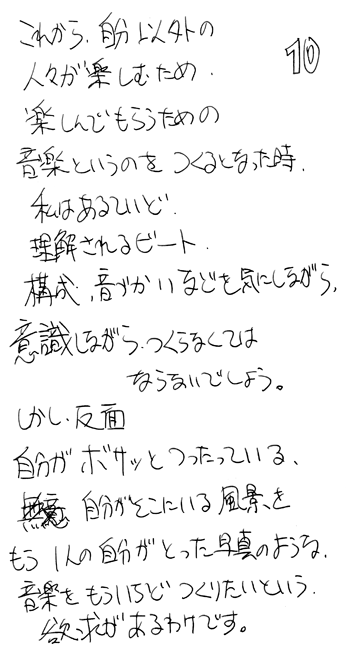 これから、自分以外の
10
人々が楽しむため.
楽しんでもらうための
音楽というのを つくるとなった時.
私はあるていど.
理解されるビート.
構成、音づかいなどを気にしながら、
意識しながら、つくらなくては
ならないでしょう。
しかし、反面
自分がボサッとつったっている、
自分がそこにいる風景、を
もう1人の自分がとった写真のような、
音楽をもういちどつくりたいという.
欲求があるわけです。